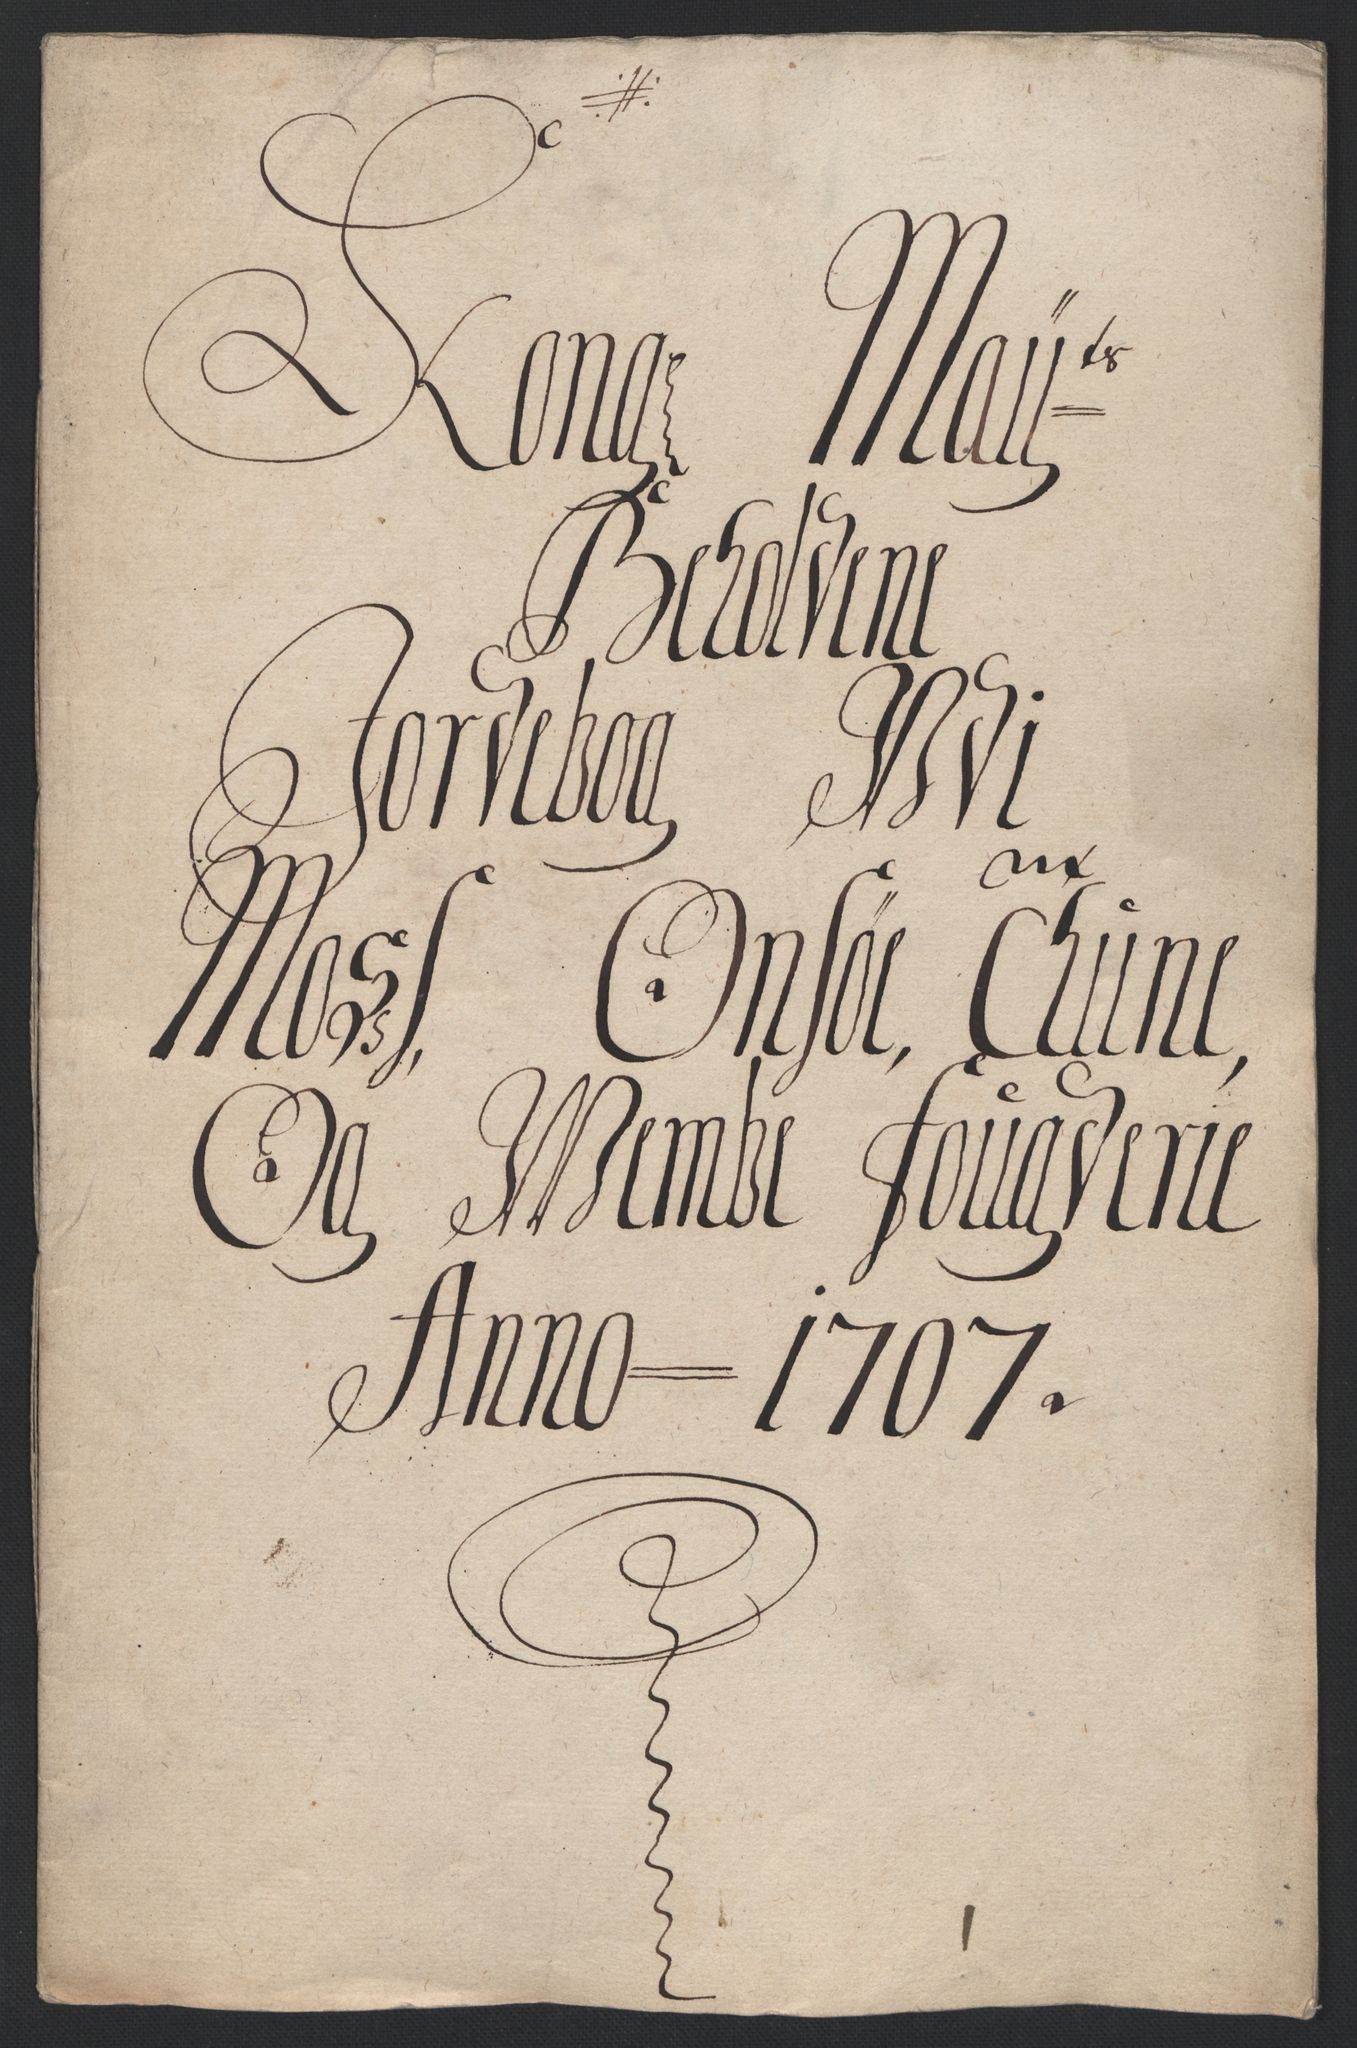 .#.
Kong: Maÿ=ts
Beholdene
Jordebog Udi
Moss, Onsöe, Thüne,
Og Wembe fougderie
Anno = 1707.